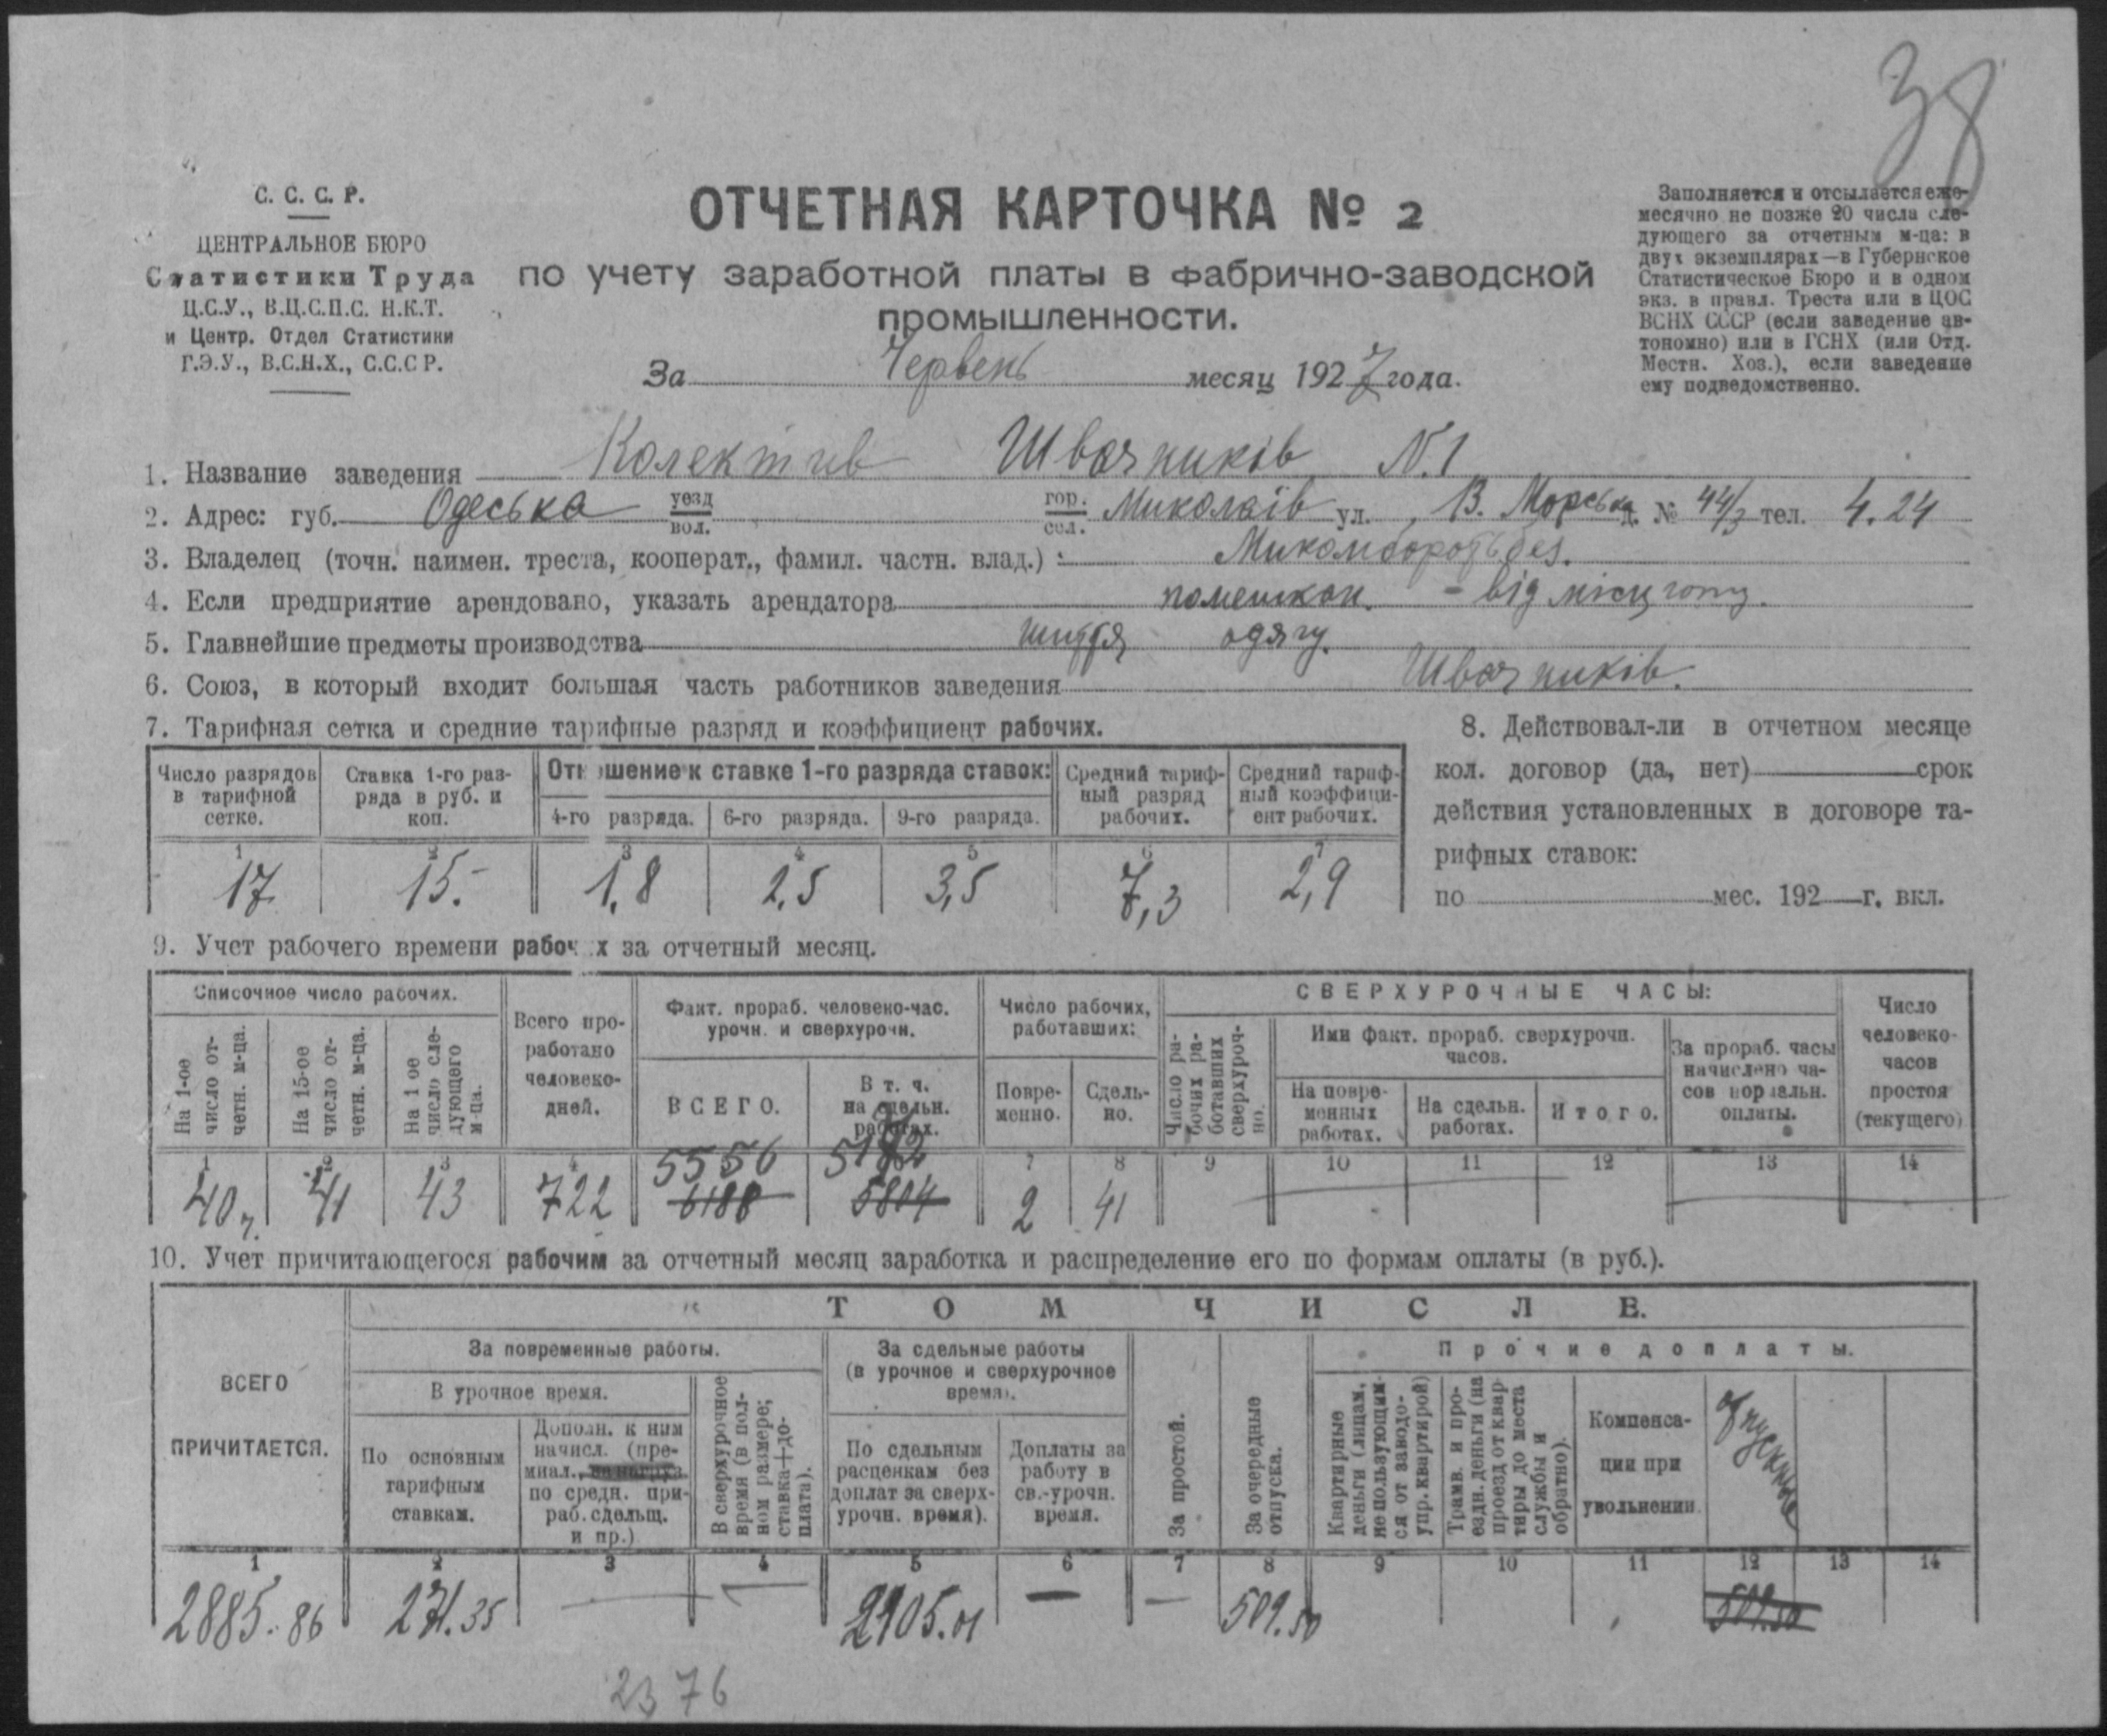 38
С. С. С. Р.
ЦЕНТРАЛЬНОЕ БЮРО
Статистики Труда
Ц.С.У., В.Ц.С.П.С. Н.К.Т.
и Центр. Отдел Статистики
Г.Э.У., В.С.Н.Х., С.С.С Р.
ОТЧЕТНАЯ КАРТОЧКА № 2
по учету заработной платы в фабрично-заводской
промышленности.
За Червень месяц 1927 года.
Заполняется и отсылается еже-
месячно не позже 20 числа сле-
дующего за отчетным м-ца: в
двух экземплярах—в Губернское
Статистическое Бюро и в одном
экз. в правл. Треста или в ЦОС
ВСНХ СССР (если заведение ав-
тономно) или в ГСНХ (или Отд.
Местн. Хоз.), если заведение
ему подведомственно.
1. Название заведения Колектив Швачників N.1
2. Адрес: губ. Одеська уезд вол. гор. сел. Миколаїв ул. В. Морська д. № 44/3 тел. 4.24
3. Владелец (точн. наимен. треста, кооперат., фамил. частн. влад.) : Микомборотьбез.
4. Если предприятие арендовано, указать арендатора помешкан. - від місцгопу.
5. Главнейшие предметы производства шиття одягу.
6. Союз, в который входит большая часть работников заведения Швачників.
7. Тарифная сетка и средние тарифные разряд и коэффициент рабочих.
Число разрядов в тарифной сетке.
Ставка 1-го раз-ряда в руб. и коп.
Отношение к ставке 1-го разряда ставок:
4-го разряда. 6-го разряда. 9-го разряда.
Средний тариф-ный разряд рабочих.
Средний тариф-ный коэффици-ент рабочих.
1 2 3 4 5 6 7
17 15.- 1,8 2,5 3,5 7,3 2,9
8. Действовал-ли в отчетном месяце
кол. договор (да, нет) срок
действия установленных в договоре та-
рифных ставок:
по мес. 192 г. вкл.
9. Учет рабочего времени рабоч х за отчетный месяц.
Списочное число рабочих.
На 1-ое число от-четн. м-ца.
На 15-ое число от-четн. м-ца.
На 1 ое число сле-дующего м-ца.
Всего про-работано человеко-дней.
Факт. прораб. человеко-час. урочн. и сверхурочн.
ВСЕГО.
В т. ч. на сдельн. работах.
Число рабочих, работавших:
Повре-менно.
Сдель-но.
СВЕРХУРОЧНЫЕ ЧАСЫ:
Число ра-бочих ра-ботавших сверхуроч-но.
Ими факт. прораб. сверхурочн. часов.
На повре-менных работах.
На сдельн. работах.
Итого.
За прораб. часы начислено ча-сов нормальн. оплаты.
Число человеко-часов простоя (текущего)
1 2 3 4 7 8 9 10 11 12 13 14
5556
40 41 43 722 6188 5804 2 41
10. Учет причитающегося рабочим за отчетный месяц заработка и распределение его по формам оплаты (в руб.).
ВСЕГО ПРИЧИТАЕТСЯ.
ТОМ ЧИСЛЕ.
За повременные работы.
В урочное время.
По основным тарифным ставкам.
Дополн. к ним начисл. (пре-миал., по средн. при-раб. сдельщ. и пр.)
В сверхурочное время (в пол-ном размере; ставка+до-плата).
За сдельные работы (в урочное и сверхурочное время).
По сдельным расценкам без доплат за сверх-урочн. время).
Доплаты за работу в св.-урочн. время.
За простой.
За очередные отпуска.
Прочие доплаты.
Квартирные деньги (лицам, не пользующим-ся от заводо-упр. квартирой)
Трамв. и про-ездн. деньги (на проезд от квар-тиры до места службы и обратно).
Компенса-ции при увольнении.
1 2 3 4 5 6 7 8 9 10 11 12 13 14
2885.86 271.35 — — 2105.01 — — 509.50 509.50
2376